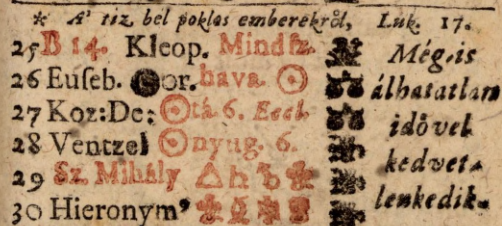 * A' tiz bel poklos emberekről, Luk. 17.
25 B 14. Kleop. Mindsz. Még-is
26 Euseb. or. hava ☉ álhatatlan
27 Koz: De: ☉ tá. 6. Eccl. idővel
28 Ventzel ☉ nyug. 6. kedvet-
29 Sz. Mihály △ ♄ lenkedik.
30 Hieronym'